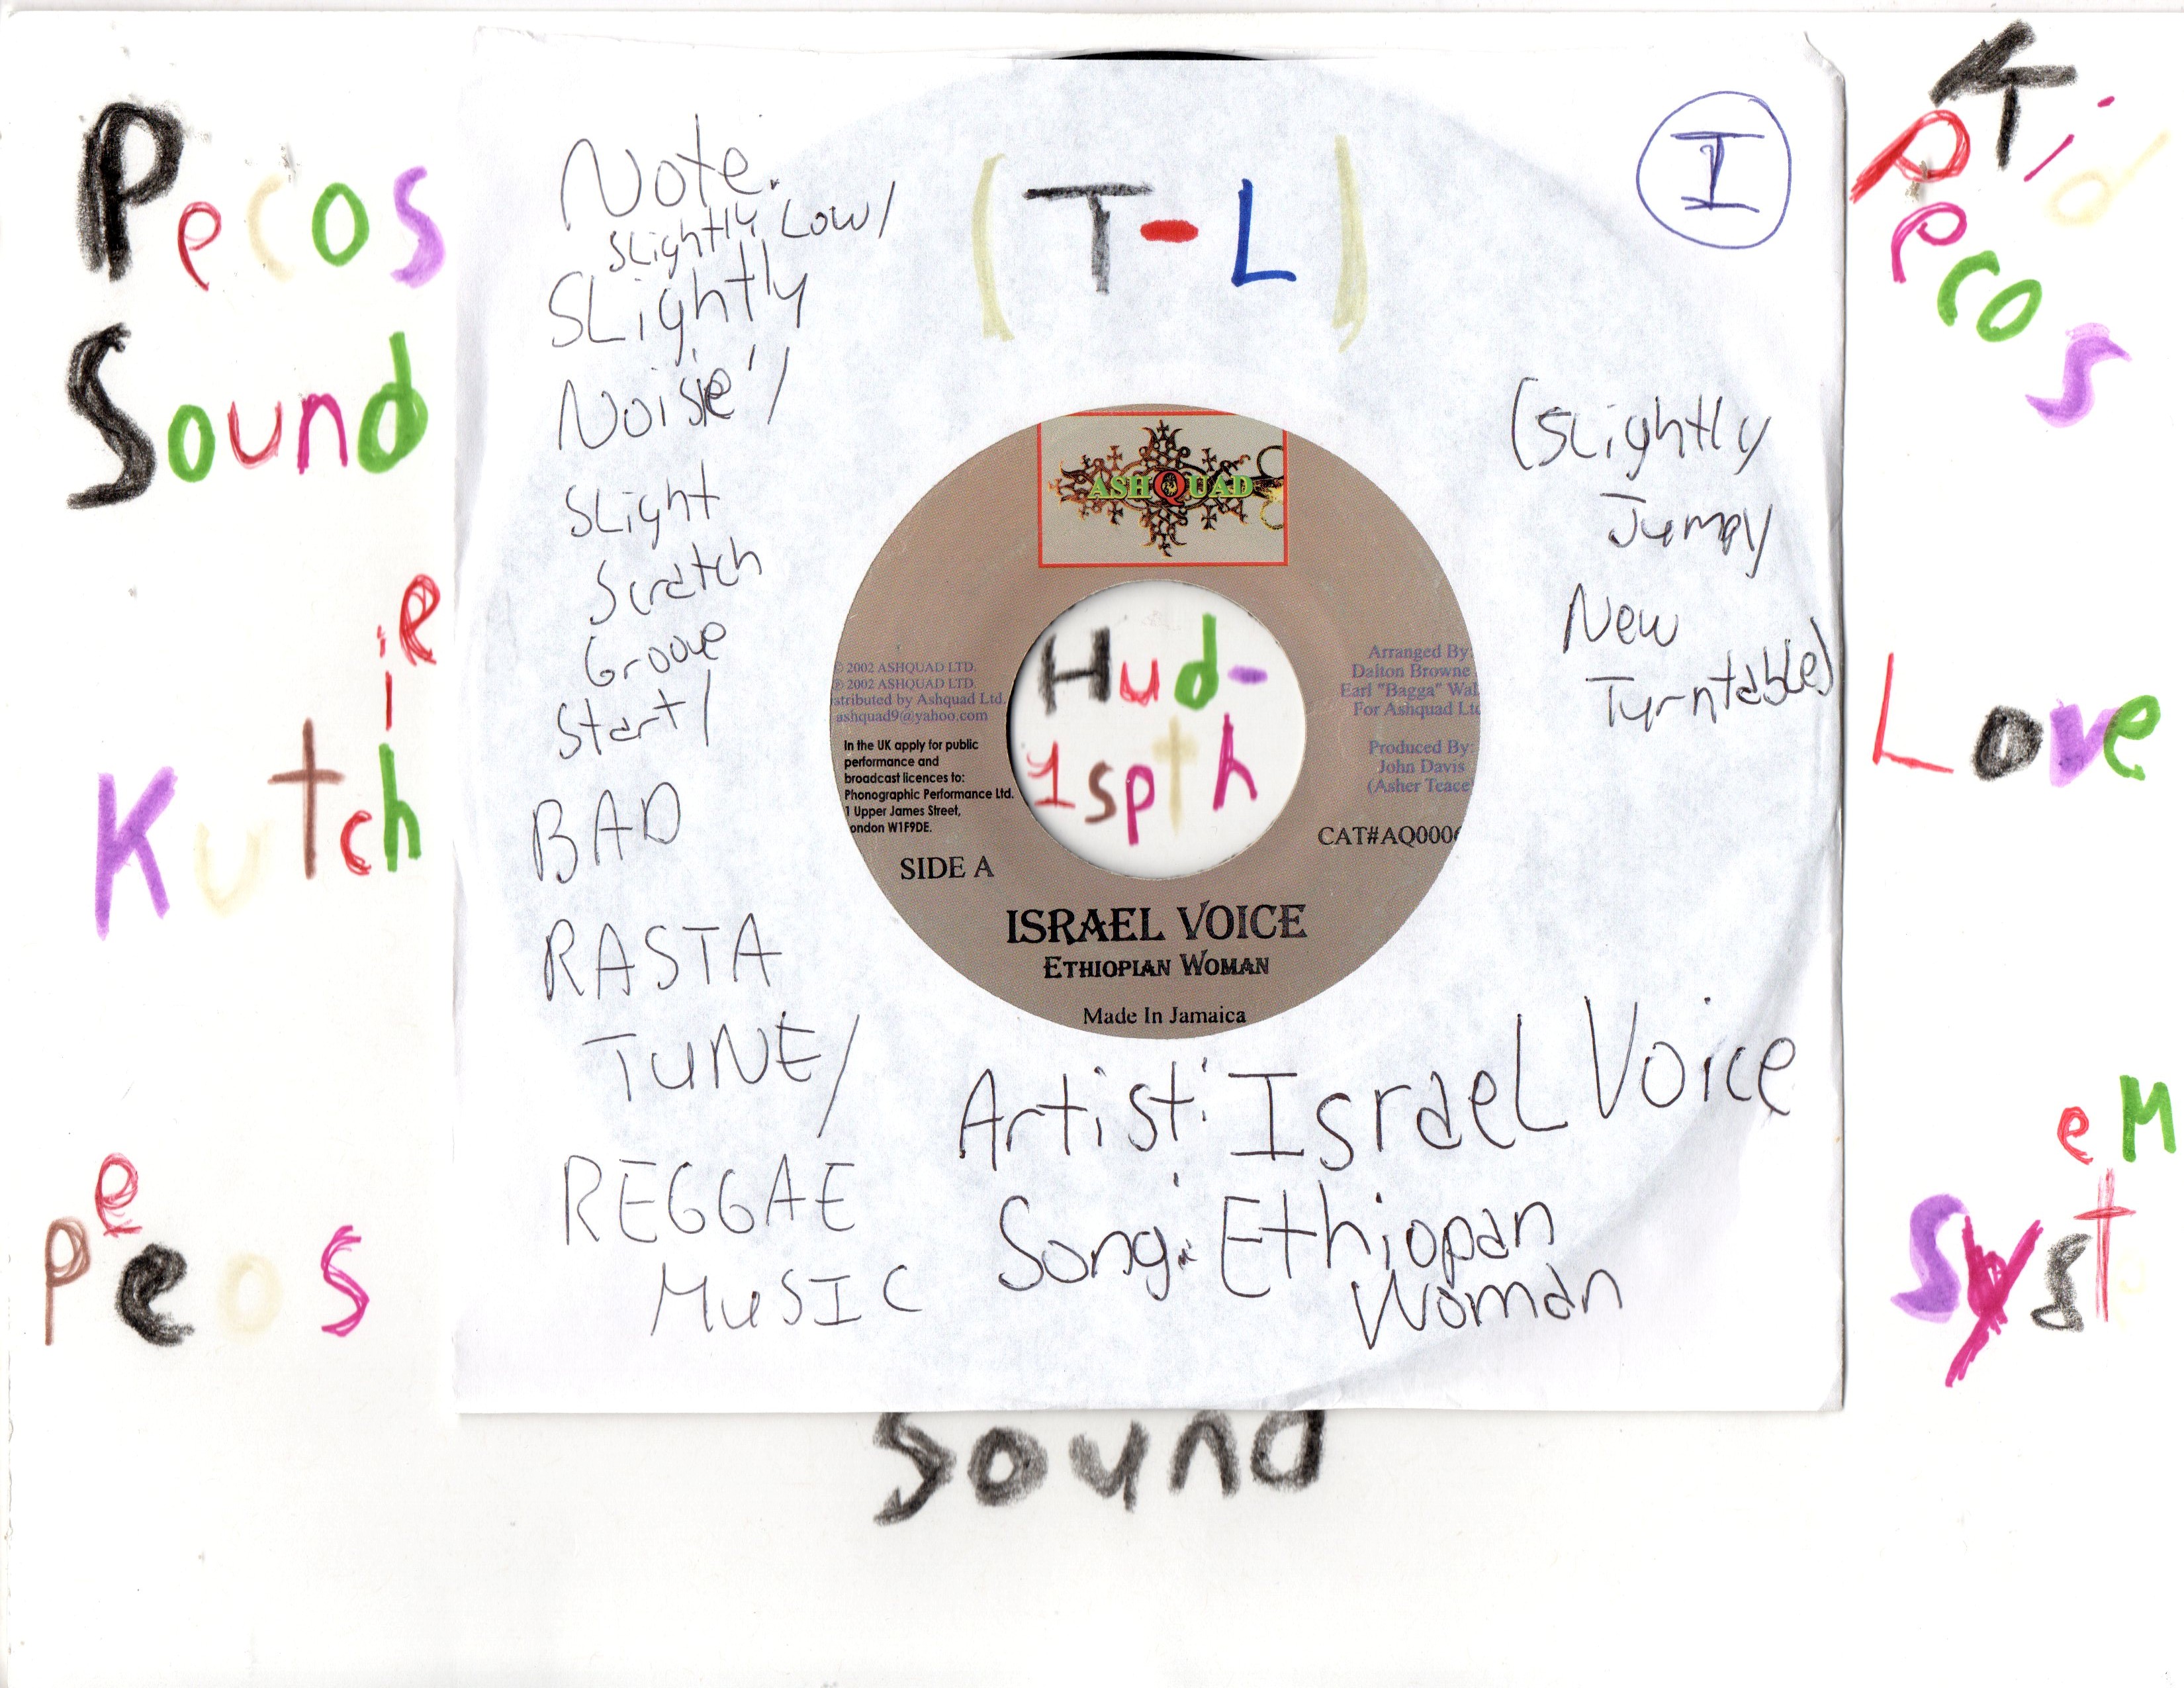 Pecos
Sound
Kutchie
Pecos
e
Sound
Kid
Pecos
Love
System
Note:
Slightly Low/
Slightly
Noise/
Slight
Scratch
Groove
Start/
BAD
RASTA
TUNE/
REGGAE
MUSIC
(T-L)
I
(Slightly
Jumpy
New
Turntable)
ASHQUAD
© 2002 ASHQUAD LTD.
℗ 2002 ASHQUAD LTD.
stributed by Ashquad Ltd.
ashquad9@yahoo.com
In the UK apply for public
performance and
broadcast licences to:
Phonographic Performance Ltd.
1 Upper James Street,
ondon W1F9DE.
SIDE A
Hud-
1spth
Arranged By:
Dalton Browne
Earl "Bagga" Wal
For Ashquad Ltd
Produced By:
John Davis
(Asher Teace
CAT#AQ000
ISRAEL VOICE
ETHIOPIAN WOMAN
Made In Jamaica
Artist: Israel Voice
Song: Ethiopan
Woman